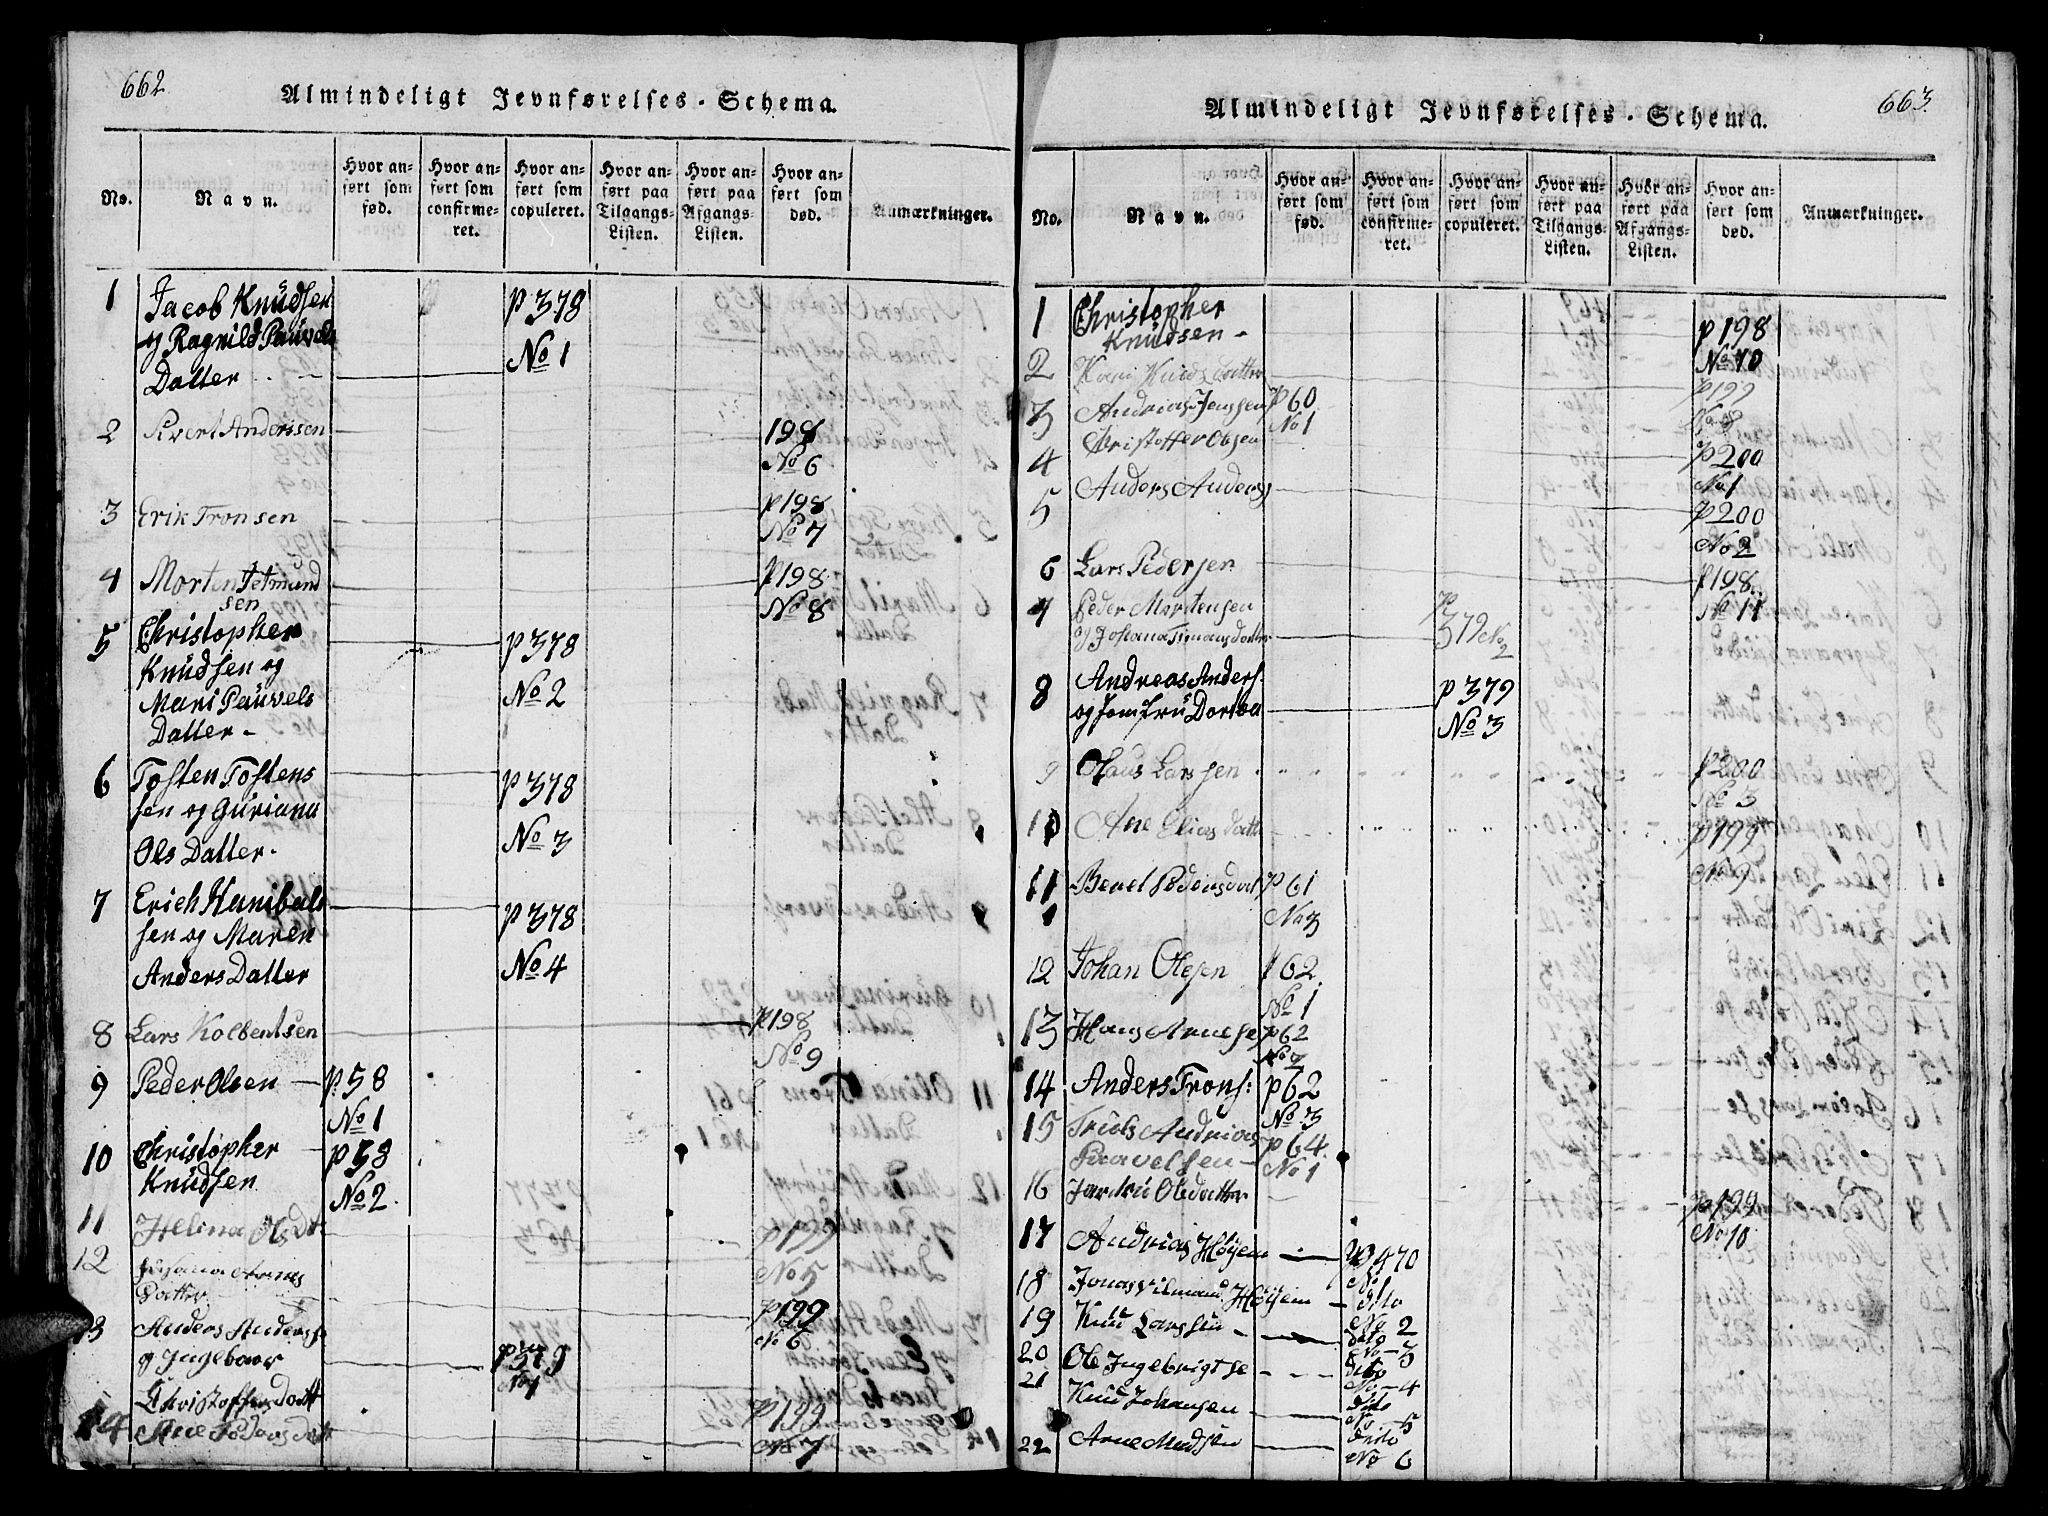 662.
Almindeligt Jevnførelses-Schema.
No.
Navn.
Hvor anført som fød.
Hvor anført som confirmeret.
Hvor anført som copuleret.
Hvor anført paa Tilgangs-Listen.
Hvor anført paa Afgangs-Listen.
Hvor anført som død.
Anmærkninger.
1 Jacob Knudsen p 378
og Ragnild Pauvels No 1
Datter
2 Sivert Anderssen 198
No 6
3 Erik Tronsen p 198
No 7
4 Morten Tetmund p 198
sen No 8
5 Christopher p 378
Knudsen og No 2
Mari Pauvels
Datter -
6 Tosten Tostens p 378
sen og Guriana No 3
Ols Datter.
7 Erich Hanibals p 378
sen og Maren No 4
Anders Datter
8 Lars Kolbentsen p 198
No 9
9 Peder Olsen p. 58
No 1
10 Christopher p 58
Knudsen No 2.
11 Helina Olsdt p 199
No 5
12 Johana Arnes p 199
Datter No 6
13 Anders Anderss
og Ingebaar p 379
Christoffersdatt No 1
14 Ane Pedersdatt p 199
No 7
663.
Almindeligt Jevnførelses-Schema.
No.
Navn.
Hvor anført som fød.
Hvor anført som confirmeret.
Hvor anført som copuleret.
Hvor anført paa Tilgangs-Listen.
Hvor anført paa Afgangs-Listen.
Hvor anført som død.
Anmærkninger.
1 Christopher p 198
Knudsen - No 10
2 Kari Knudsdatter p 199
No 8
3 Andrias Jenssen p 60
No 1
4 Christoffer Olsen p 200
No 1
5 Anders Anderss p 200
No 2
6 Lars Pedersen p 198
No 11
7 Peder Mortensen p
og Johana Timansdatter 379 No 2
8 Andreas Anders. p 379
og Jomfru Dorthea No 3
9 Olaus Larssen p 200
No 3
10 Ane Eliasdatt p 199
No 9
11 Beret Pedersdat p 61
No 3
12 Johan Olesen p 62
No 1
13 Hans Arnese p 62
No 2
14 Anders Trons: p 62
No 3
15 Truls Andrias p 64
Paavelsen - No 1
16 Jardru Olsdatter p 199
No 10
17 Andrias Høyem p 470
No 1
18 Jonas Vilmand Høyem - Dito
No 2
19 Knud Larssen - dito
No - 3
20 Ole Ingebrigtse - - - dito
No - 4
21 Knud Johansen dito
No - 5
22 Arne Madsen Dito
No 6